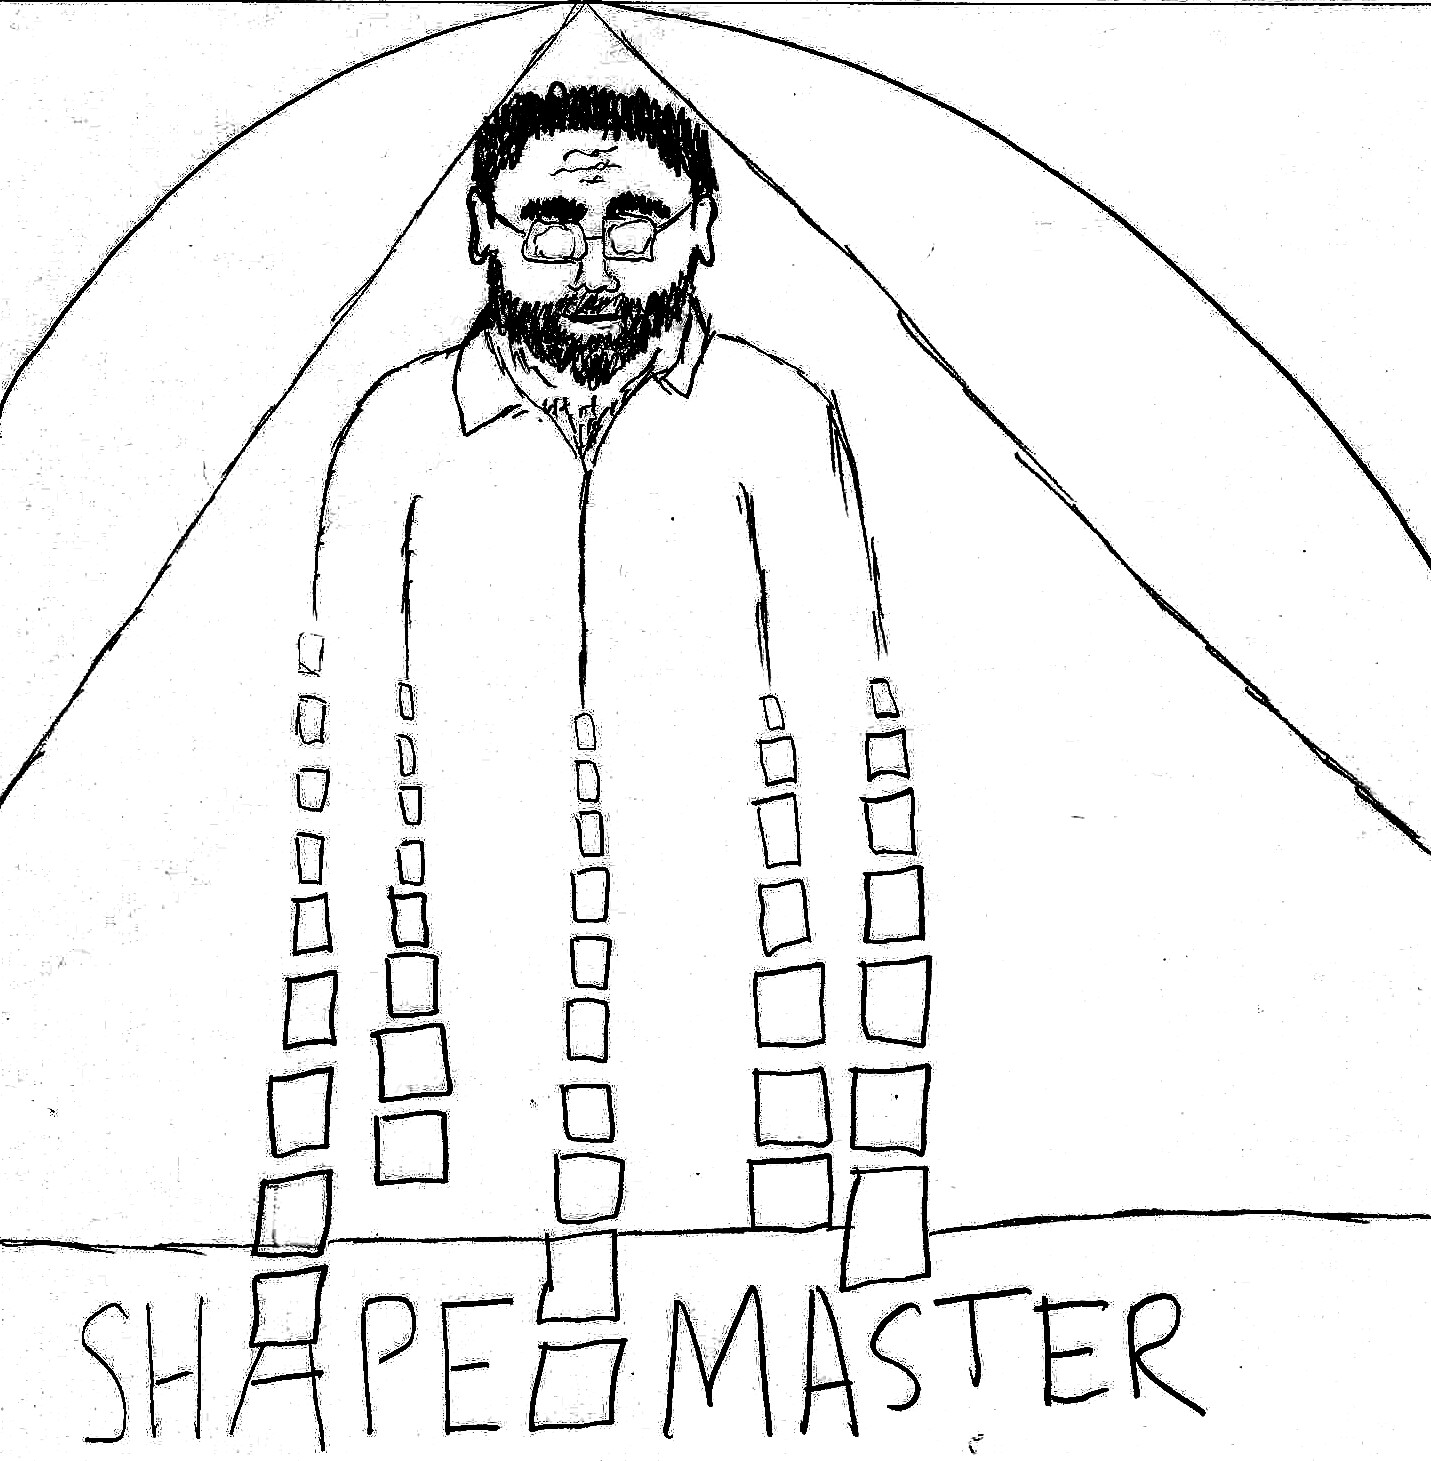 SHAPE MASTER